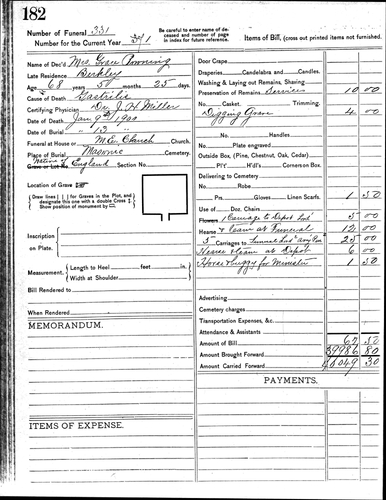 182
Number of Funeral 331
Number for the Current Year 331
Be carefull to enter name of deceased and number of page in index for future reference.
Items of Bill, (cross out printed items not furnished.
Name of Dec'd Mrs. Grace
Late Residence Berkley
Age 68 years 5 months 25 days.
Cause of Death Gastritis
Certifying Physician Dr. J. H. Miller
Date of Death Jan 9th 1900
Date of Burial " 13 "
Funeral at House or M.E. Church
Place of Burial, Masonic Cemetery.
Grave or Lot No. Native of England Section No.
Location of Grave
Draw lines [ ] for Graves in the Plot, and designate this one with a double Cross. Show position of monument by
Inscription on Plate.
Measurement. Length to Heel feet in.
Width at Shoulder
Bill Rendered to
When Rendered
MEMORANDUM.
ITEMS OF EXPENSE.
Door Crape
Draperies Candelabra and Candles.
Washing & Laying out Remains, Shaving
Preservation of Remains Services 10 00
No. Casket. Trimming.
Digging Grave 4 00
No. Handles
Plate engraved
Outside Box, (Pine, Chestnut, Oak, Cedar)
P'l'y H'dl's Corners on Box.
Delivering to Cemetery
No. Robe
Prs. Gloves Linen Scarfs. 1 50
Use of Doz. Chairs
Flowers 1 Carriage to Depot 5 00
Hearse & Team at Funeral 12 00
5 Carriages to Funeral 25 00
Hearse & Team at Depot 6 00
Horse & buggy for Minister 1 50
Advertising
Cemetery charges
Transportation Expenses, &c.
Attendance & Assistants
Amount of Bill 62 50
Amount Brought Forward 39986 80
Amount Carried Forward 40049 30
PAYMENTS.